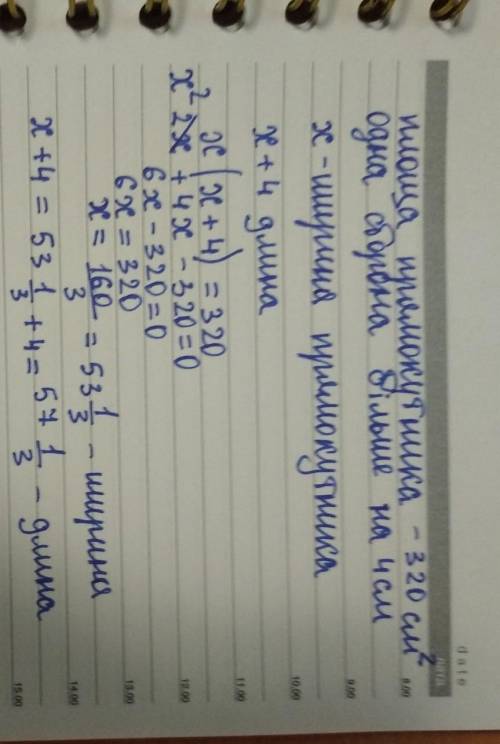 date
площа прямокутника - 320 см²
одна сторона більше на 4 см
x - ширина прямокутника
x + 4 длина
x (x + 4) = 320
x² 2x + 4x - 320 = 0
6x - 320 = 0
6x = 320
x = 160/3 = 53 1/3 - ширина
x + 4 = 53 1/3 + 4 = 57 1/3 - длина
8.00
9.00
10.00
11.00
12.00
13.00
14.00
15.00